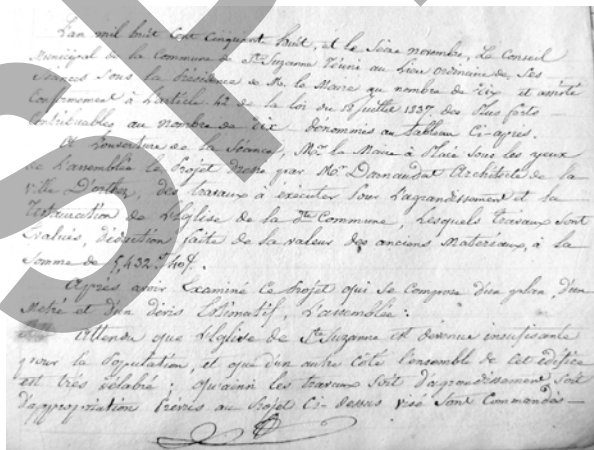 L'an mil huit cent cinquante huit, et le seize novembre, Le Conseil
Municipal de la Commune de Ste Suzanne réuni au Lieu ordinaire de Ses
Séances Sous la Présidence de Mr. le Maire au nombre de dix et assisté
Conformément à l'article 42 de la loi du Juillet 1837 des Plus forts
Contribuables au nombre de dix dénommés au tableau Ci-après.
A L'ouverture de la Séance, Mr. le Maire a Placé sous les yeux
de l'assemblée le Projet Dressé par Mr. Darnaudat Architecte de la
ville D'orthez, des travaux à exécuter Pour l'agrandissement et la
restauration de l'Eglise de la dte Commune, Lesquels travaux sont
Evalués, déduction faite de la valeur des anciens Matereaux, à la
Somme de 5,432 f 40 c.
Après avoir Examiné Ce Projet qui Se Compose d'un plan, d'un
Métré et d'un devis Estimatif, L'assemblée :
Attendu que l'Eglise de Ste Suzanne est devenue insuffisante
pour la Population, et que d'un autre Côté l'ensemble de Cet édifice
est très délabré ; qu'ainsi les travaux Soit d'agrandissement Soit
D'appropriation Prévus au Projet Ci-dessus visé Sont Commandés